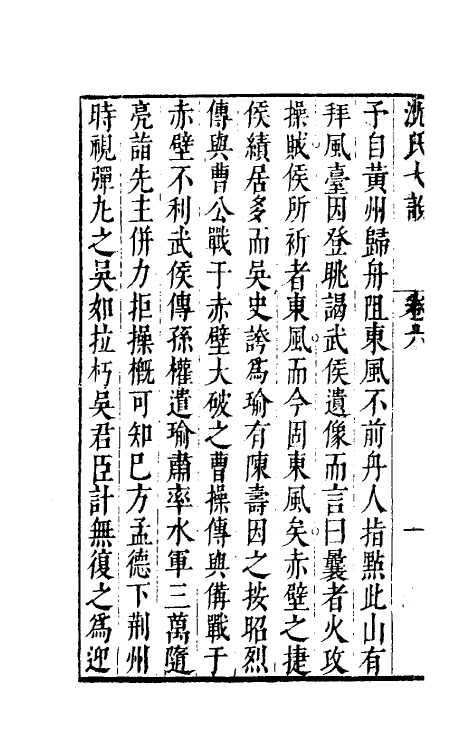 予自黃州歸舟阻東風不前舟人指點此山有
拜風臺因登眺謁武侯遺像而言曰曩者火攻
操賊侯所祈者東風而今固東風矣赤壁之捷
侯績居多而吳史誇爲瑜有陳壽因之按昭烈
傳與曹公戰于赤壁大破之曹操傳與備戰于
赤壁不利武侯傳孫權遣瑜肅率水軍三萬隨
亮詣先主併力拒操槪可知巳方孟德下荆州
時視彈丸之吳如拉朽吳君臣計無復之爲迎
卷六
一